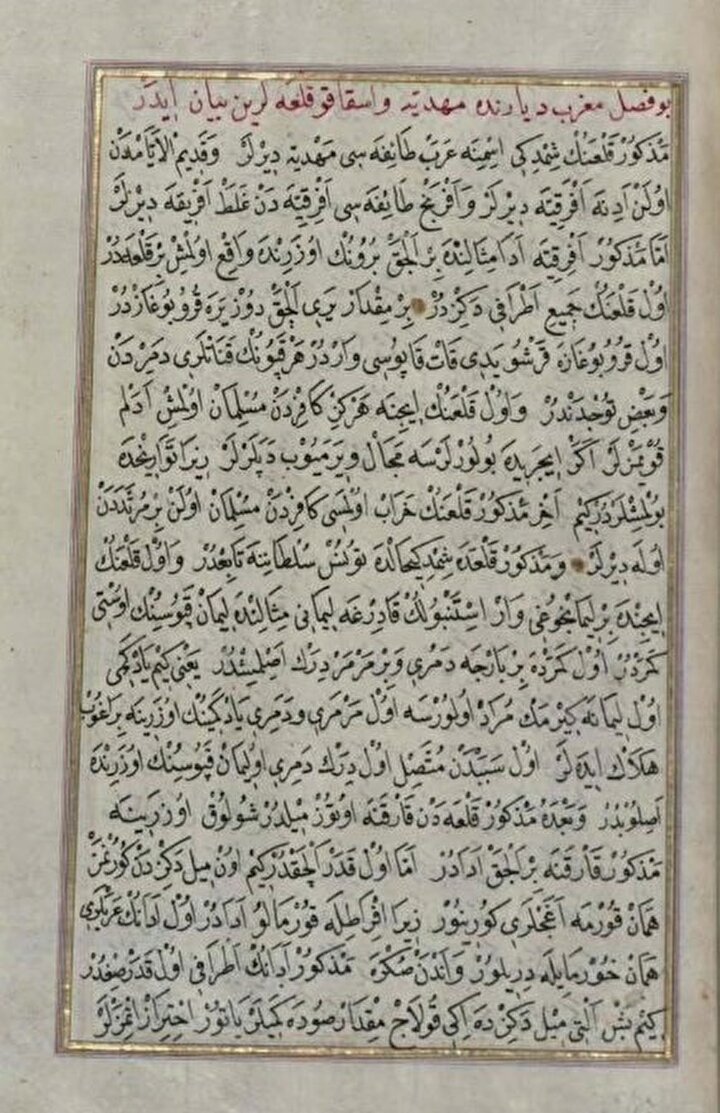 بو فصل مغرب ديارنده مهديه و اسقاقو قلعه لرين بيان ايدر
مَذكُورْ قَلعَنُكْ شِمْدِكِي اِسْمِنَه عَرَبْ طَائِفَه سِي مَهْدِيَه دِيرْلَرْ وَقَدِيمُ الْاَيَّامْدَنْ
اولَنْ اَدِنَه اَفْرِقِيَه دِيرْلَرْ وَاَفْرَنجْ طَائِفَه سِي اَفْرِقِيَه دَنْ غَلَطْ اَفْرِيقَه دِيرْلَرْ
اَمَّا مَذكُورْ اَفْرِقِيَه اَدَا مِثَالِنْدَه بِرْ اَلْجَقْ بُرُونُكْ اوزَرِنْدَه وَاقِعْ اولمِشْ بِرْ قَلعَه دُرْ
اولْ قَلعَنُكْ جَمِيعِ اَطْرَافِي دَكِزْدُرْ بِرْ مِقْدَارْ يَرِي اَلْجَقْ دُوزْ يَرَه قُرُو بُوغَازْدُرْ
اولْ قُرُو بُوغَازَه قَرْشُو يَدِي قَاتْ قَاپُوسِي وَارْدُرْ هَرْ قَپُونُكْ قَنَاتْلَرِي دَمِرْدَنْ
وَبَعْضِ تُوجْدَنْدُرْ وَاولْ قَلعَنُكْ اِيچِنَه هَرْكِزْ كَافِرْدَنْ مُسْلِمَانْ اولمِشْ اَدَمْ
قُويمَزْلَرْ اَكَرْ اِيچَرِيدَه بُولُورْلَرْسَه مَجَالْ وِيرْمَيُوبْ دَپَلَرْلَرْ زِيرَا تَوَارِيخْدَه
بُولمِشْلَرْدُرْ كِيمْ اَخِرْ مَذكُورْ قَلعَنُكْ خَرَابْ اولمَسِي كَافِرْدَنْ مُسْلِمَانْ اولَنْ بِرْ مُرْتَدْدَنْ
اولَه دِيرْلَرْ وَمَذكُورْ قَلعَه شِمْدِكِيحَالْدَه تُونُسْ سُلطَانِنَه تَابِعْدُرْ وَاولْ قَلعَنُكْ
اِيچِنْدَه بِرْ لِيمَانْجُوغِي وَارْ اِسْتَنْبُولُكْ قَادِرْغَه لِيمَانِي مِثَالِنْدَه لِيمَانْ قَپُوسِنُكْ اوسْتِي
كَمَرْدُرْ اولْ كَمَرْدَه بِرْ پَارْچَه دَمُرِي وَبِرْ مَرْمَرْ دِرَكْ اَصِلمِشْدُرْ يَعْنِي كِيمْ يَادْ كَمِي
اولْ لِيمَانَه كِيرْمَكْ مُرَادْ اولُورْسَه اولْ مَرْمَرِي وَدَمُرِي يَادْ كَمِينُكْ اوزَرِينَه بِرَاغُوبْ
هَلَاكْ اِيدَه لَرْ اولْ سَبَبْدَنْ مُتَّصِلْ اولْ دِرَكْ دَمُرِي اولِيمَانْ قَپُوسِنُكْ اوزَرِنْدَه
اَصِلُوبْدُرْ وَبَعْدَه مَذكُورْ قَلعَه دَنْ قَارْقَنَه اوتُوزْ مِيلْدُرْ شُولُوقْ اوزَرِينَه
مَذكُورْ قَارْقَنَه بِرْ اَلْچَقْ اَدَادُرْ اَمَّا اولْ قَدَرْ اَلْچَقْدُرْ كِيمْ اونْ مِيلْ دَكِزْدَنْ كُورُنْمَزْ
هَمَانْ قُورْمَه اَغَچْلَرِي كُورِينُورْ زِيرَا اِفْرَاطِلَه قُورْمَالُو اَدَادُرْ اولْ اَدَانُكْ عَرَبْلَرِي
هَمَانْ خُورْمَايِلَه دِرِيلُورْ وَاَنْدَنْ صُكْرَه مَذكُورْ اَدَانُكْ اَطْرَافِي اولْ قَدَرْ صِغْدُرْ
كِيمْ بَشْ اَلتِي مِيلْ دَكِزْدَه اِكِي قُولَاجْ مِقْدَارْ صُودَه كَمِيلَرْ يَاتُورْ اِحْتِرَازْ اِتْمَزْلَرْ